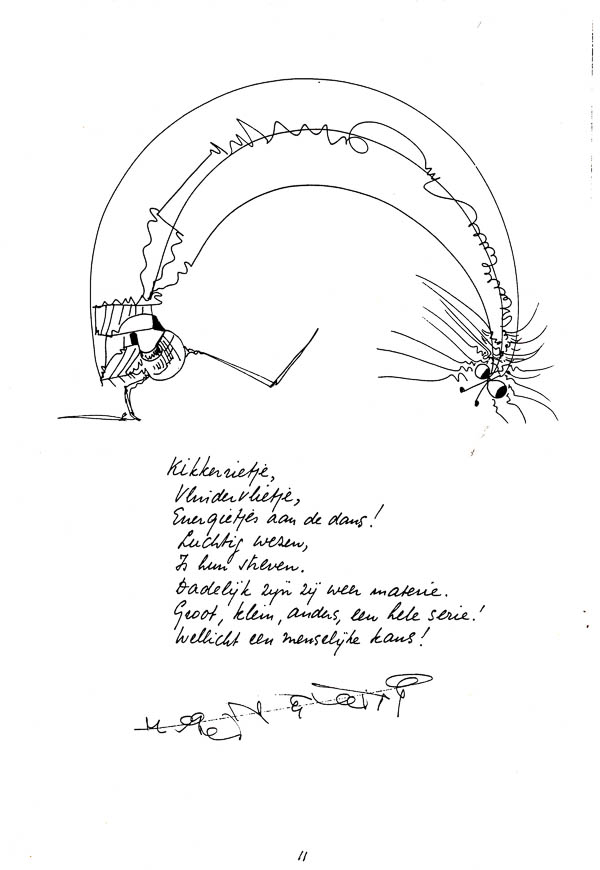 Kikkerrietje,
Vlindervlietje,
Energietjes aan de dans!
Luchtig wezen,
Is hun streven.
Dadelijk zijn zij weer materie.
Groot, klein, anders, een hele serie!
Wellicht een menselijke kans!
11